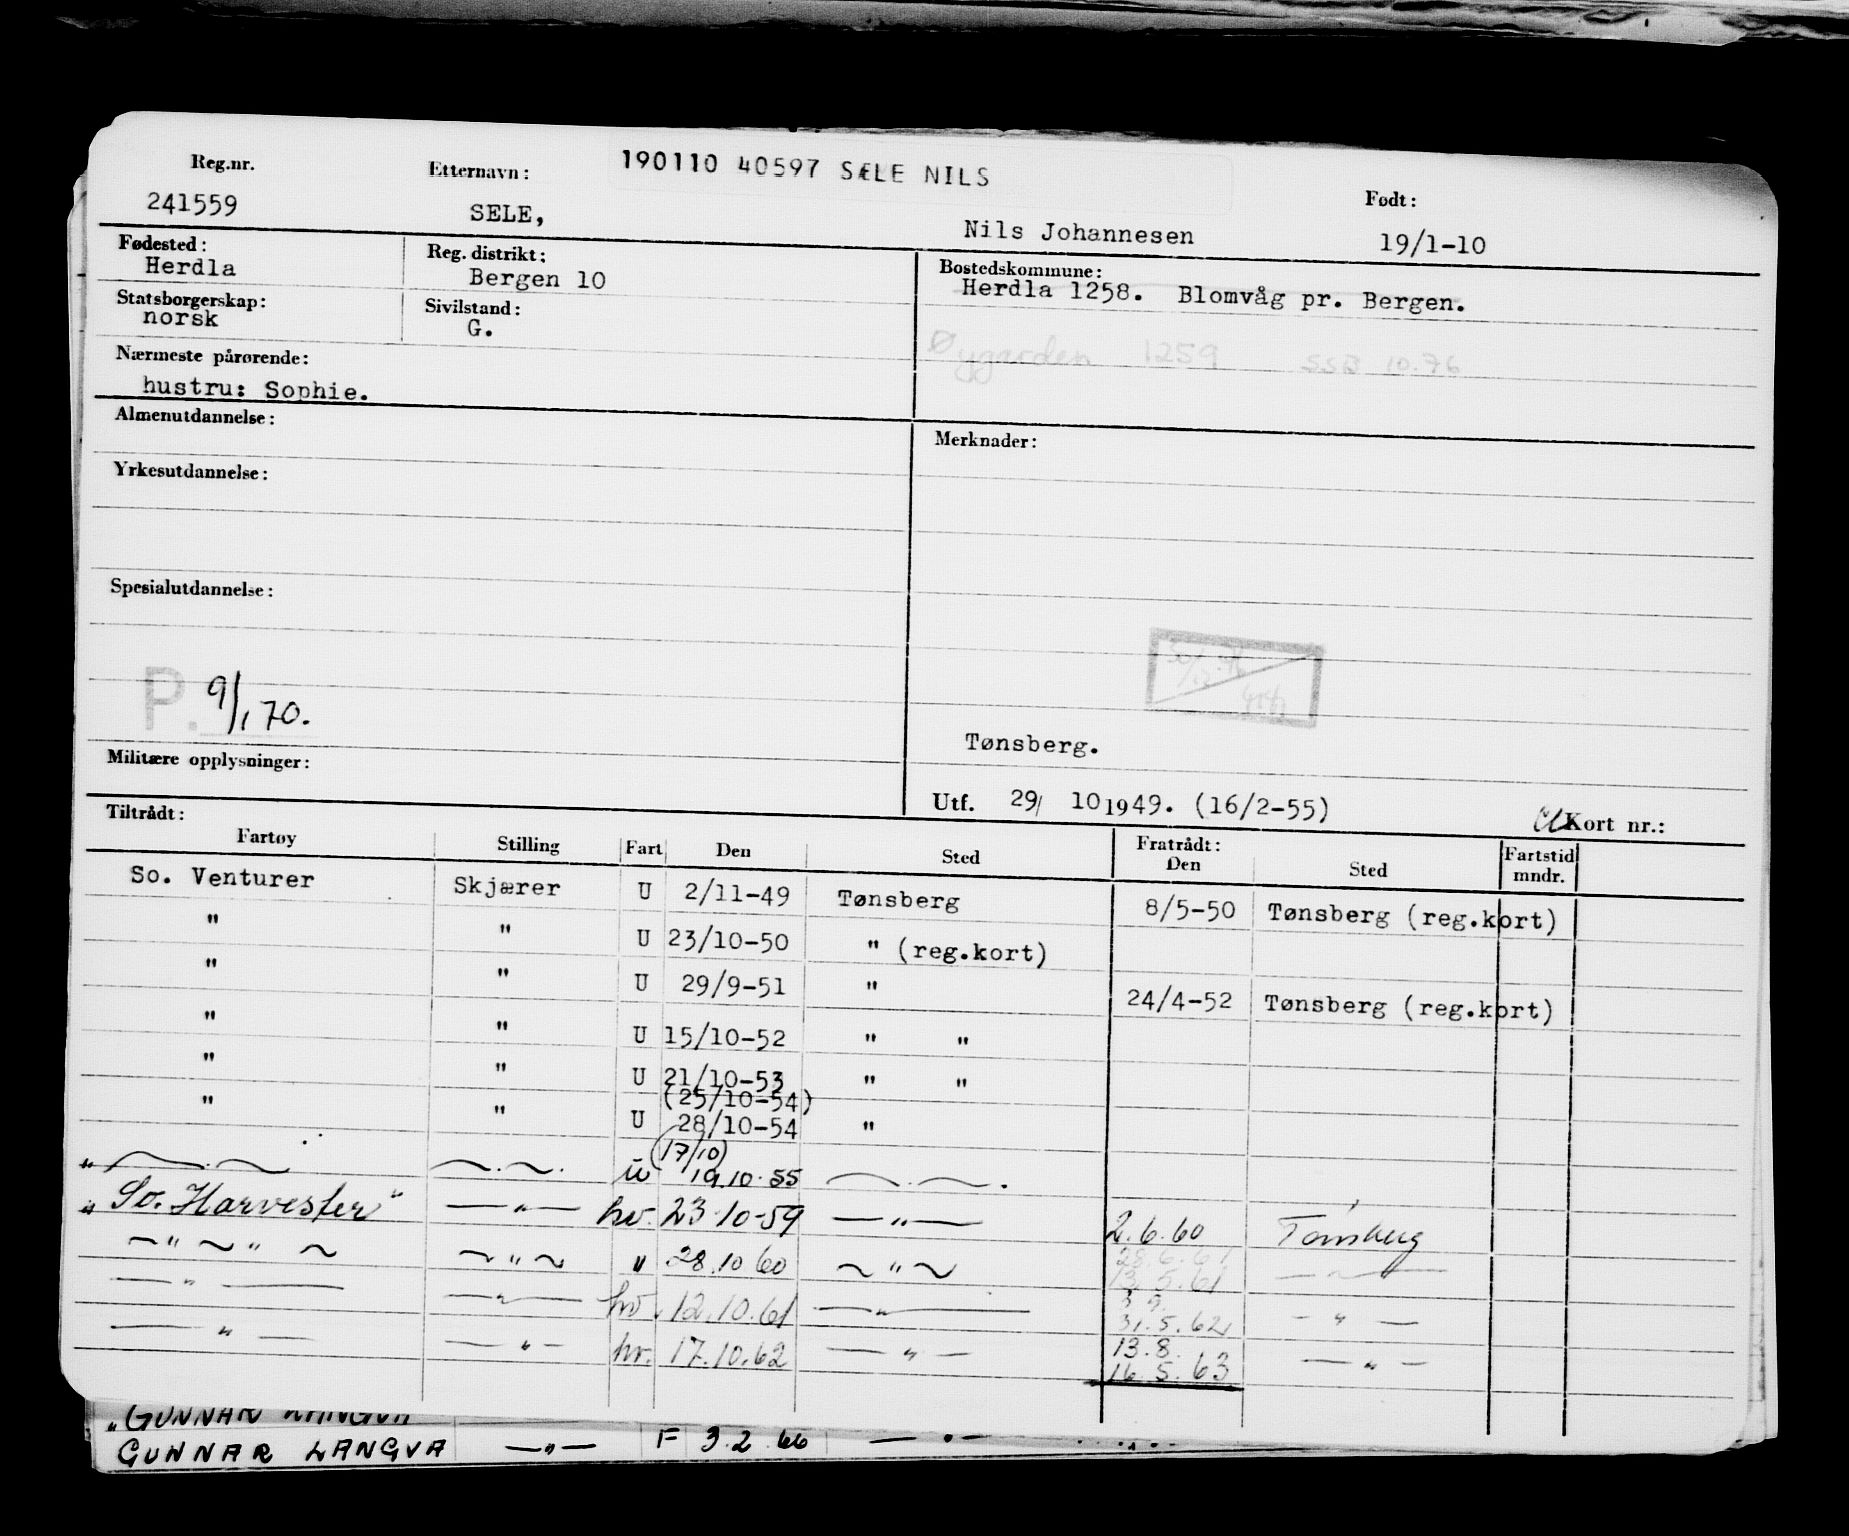 190110 40597 SÆLE NILS
Reg.nr. Etternavn: Født:
241559 SELE, Nils Johannesen 19/1-10
Fødested: Reg. distrikt: Bostedskommune:
Herdla Bergen 10 Herdla 1258. Blomvåg pr. Bergen.
Statsborgerskap: Sivilstand:
norsk G.
Øygarden 1259 SSB 10.76
Nærmeste pårørende:
hustru: Sophie.
Almenutdannelse: Merknader:
Yrkesutdannelse:
Spesialutdannelse:
P. 9/1 70.
Tønsberg.
Militære opplysninger:
Utf. 29/ 10 1949. (16/2-55) Kort nr.:
Tiltrådt: Fratrådt:
Fartøy Stilling Fart Den Sted Den Sted Fartstid mndr.
So. Venturer Skjærer U 2/11-49 Tønsberg 8/5-50 Tønsberg (reg.kort)
" " U 23/10-50 " (reg.kort)
" " U 29/9-51 " 24/4-52 Tønsberg (reg.kort)
" " U 15/10-52 " "
" " U 21/10-53 " "
(25/10-54)
" " U 28/10-54 "
(17/10)
" — . — — . — . u 19.10.55 — . — .
"So. Harvester" — " — hv. 23.10-59 — " — 2.6.60 Tønsberg
28.6.61
— " — " — — " — " 28.10 60 — " — 13.5.61 — " —
3.9.
— " — — " — hv. 12.10.61 — " — 31.5.62 — " —
13.8.
— " — — " — hv. 17.10.62 — " — 16.5.63 — " —
"GUNNAR LANGVA
GUNNAR LANGVA — " — F 3.2.66 — " —